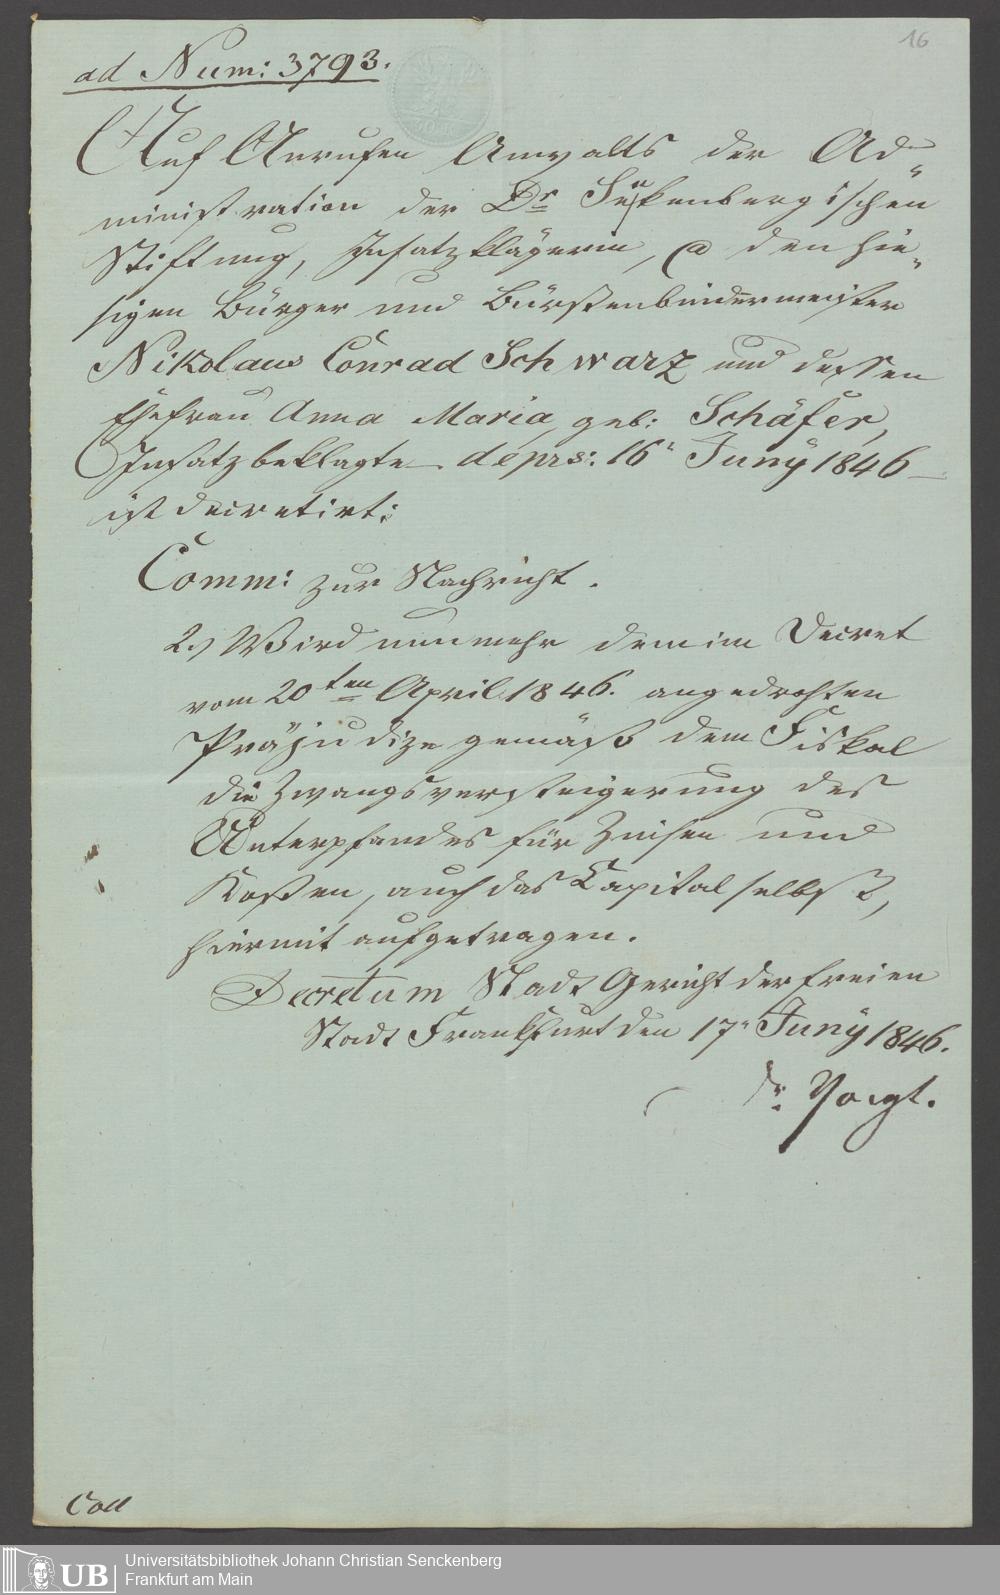 16
ad Num: 3793.
Auf Anrufen Anwalts der Ad„
ministration der Dr Senkenbergischen
Stiftung, Insatzklägerin, ca den hie„
sigen Bürger und Bürstenbindermeister
Nikolaus Conrad Schwarz und dessen
Ehefrau Anna Maria, geb: Schäfer,
Insatzbeklagte deprs: 16n Juny 1846
ist decretirt:
Comm: zur Nachricht.
2.) Wird nunmehr dem im Decret
vom 20ten April 1846. angedrohten
Präjudize gemäß dem Fiskal
die Zwangsversteigerung des
Unterpfandes für Zinsen und
Kosten, auch das Capital selbst,
hiermit aufgetragen.
Decretum Stadt Gericht der freien
Stadt Frankfurt den 17n Juny 1846.
Dr. Voigt.
Coll
UB
Universitätsbibliothek Johann Christian Senckenberg
Frankfurt am Main